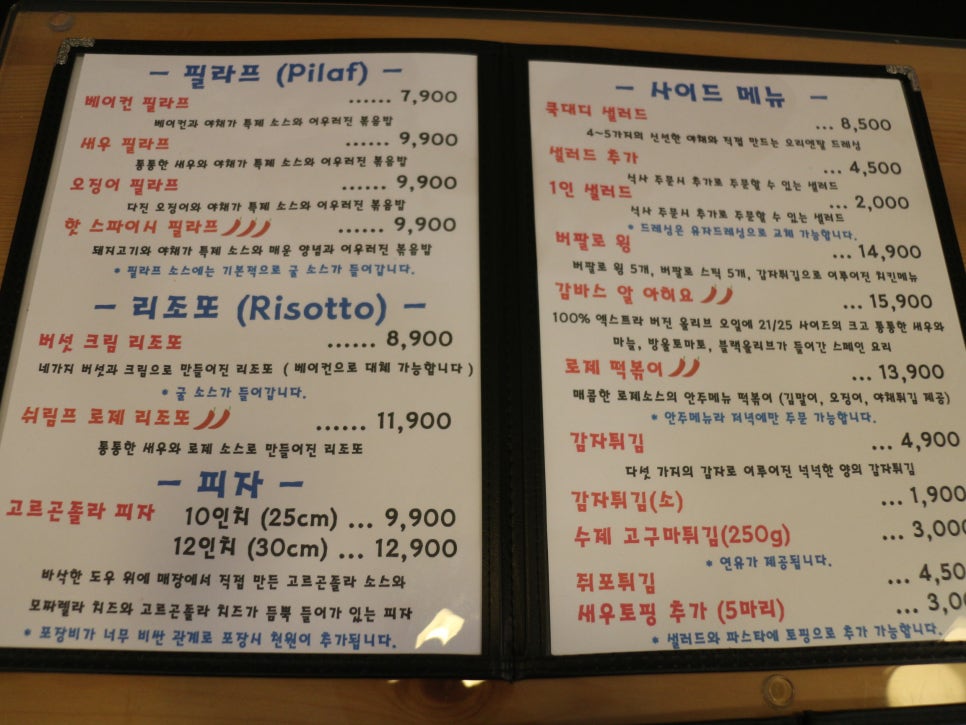 - 필라프 (Pilaf) -
베이컨 필라프 ...... 7,900
베이컨과 야채가 특제 소스와 어우러진 볶음밥
새우 필라프 ...... 9,900
통통한 새우와 야채가 특제 소스와 어우러진 볶음밥
오징어 필라프 ...... 9,900
다진 오징어와 야채가 특제 소스와 어우러진 볶음밥
핫 스파이시 필라프 ...... 9,900
돼지고기와 야채가 특제 소스와 매운 양념과 어우러진 볶음밥
* 필라프 소스에는 기본적으로 굴 소스가 들어갑니다.
- 리조또 (Risotto) -
버섯 크림 리조또 ...... 8,900
네가지 버섯과 크림으로 만들어진 리조또 ( 베이컨으로 대체 가능합니다 )
* 굴 소스가 들어갑니다.
쉬림프 로제 리조또 ...... 11,900
통통한 새우와 로제 소스로 만들어진 리조또
- 피자 -
고르곤졸라 피자 10인치 (25cm) ... 9,900
12인치 (30cm) ... 12,900
바삭한 도우 위에 매장에서 직접 만든 고르곤졸라 소스와
모짜렐라 치즈와 고르곤졸라 치즈가 듬뿍 들어가 있는 피자
* 포장비가 너무 비싼 관계로 포장시 천원이 추가됩니다.
- 사이드 메뉴 -
쿡대디 샐러드 ... 8,500
4~5가지의 신선한 야채와 직접 만드는 오리엔탈 드레싱
샐러드 추가 ... 4,500
식사 주문시 추가로 주문할 수 있는 샐러드
1인 샐러드 ... 2,000
식사 주문시 추가로 주문할 수 있는 샐러드
* 드레싱은 유자드레싱으로 교체 가능합니다.
버팔로 윙 ... 14,900
버팔로 윙 5개, 버팔로 스틱 5개, 감자튀김으로 이루어진 치킨메뉴
감바스 알 아히요 ... 15,900
100% 엑스트라 버진 올리브 오일에 21/25 사이즈의 크고 통통한 새우와
마늘, 방울토마토, 블랙올리브가 들어간 스페인 요리
로제 떡볶이 ... 13,900
매콤한 로제소스의 안주메뉴 떡볶이 (김말이, 오징어, 야채튀김 제공)
* 안주메뉴라 저녁에만 주문 가능합니다.
감자튀김 ... 4,900
다섯 가지의 감자로 이루어진 넉넉한 양의 감자튀김
감자튀김(소) ... 1,900
수제 고구마튀김(250g) ... 3,000
* 연유가 제공됩니다.
쥐포튀김 ... 4,50
새우토핑 추가 (5마리) ... 3,0
* 샐러드와 파스타에 토핑으로 추가 가능합니다.